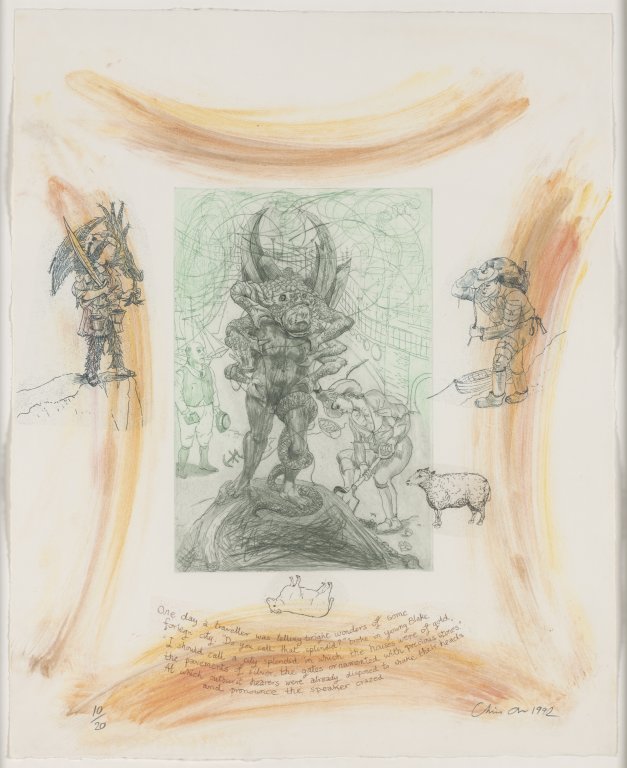 One day a traveller was telling bright wonders of some
foreign city. Do you call that splendid? broke in young Blake.
I should call a city splendid in which the houses were of gold,
the pavements of silver, the gates ornamented with precious stones.
At which outburst hearers were already disposed to shake their heads
and pronounce the speaker crazed
10/20
1992